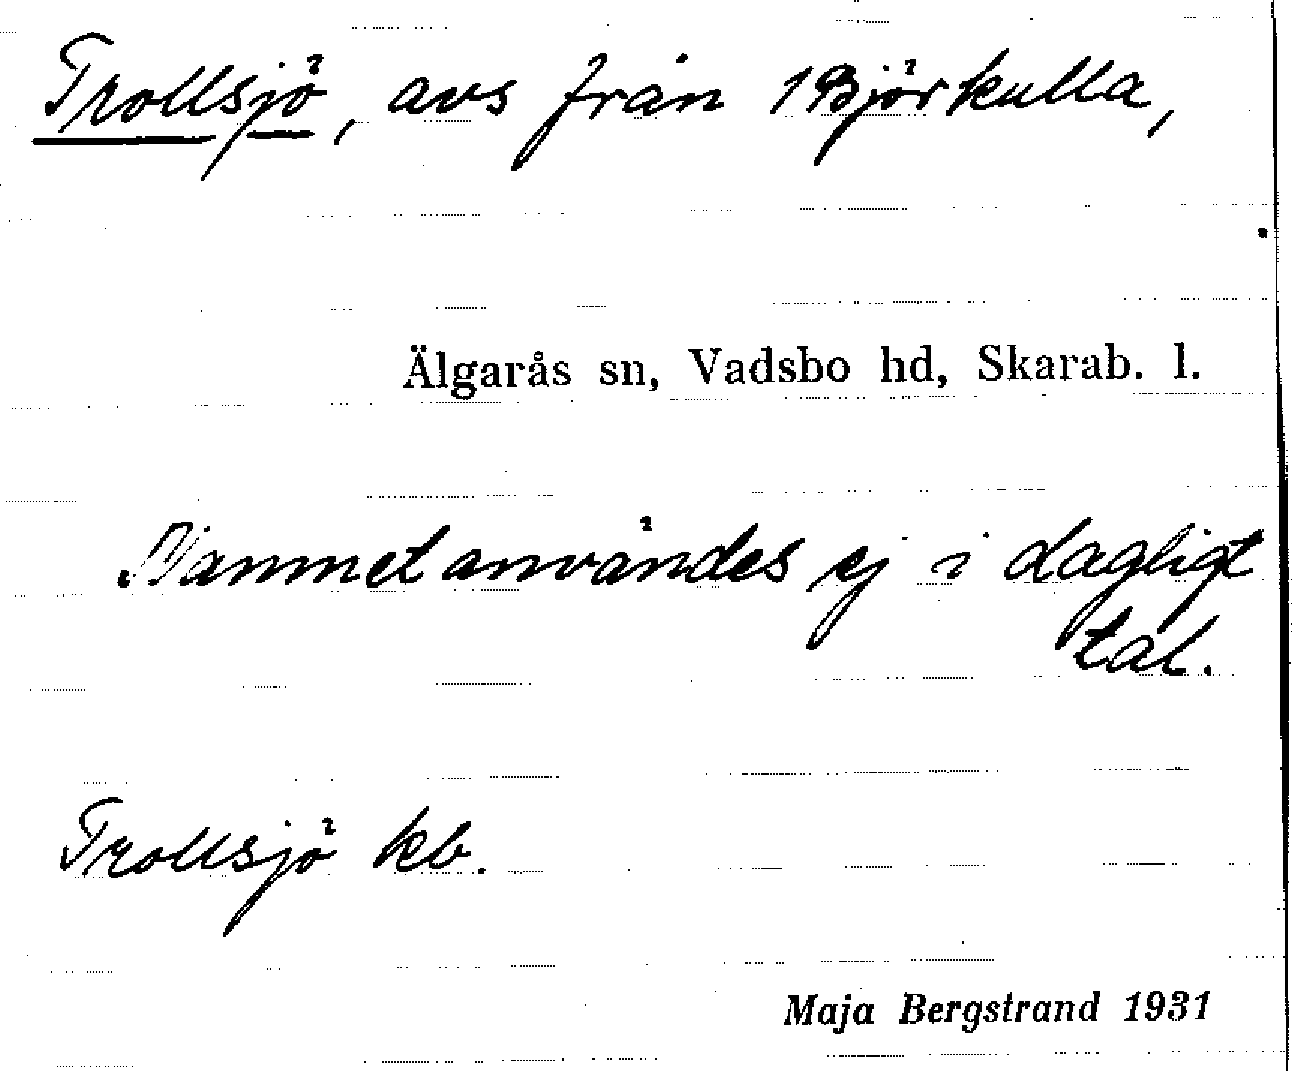 Trollsjö, avs från 1 Björkulla,
Älgarås sn, Vadsbo hd, Skarab. l.
Namnet användes ej i dagligt
tal.
Trollsjö kb.
Maja Bergstrand 1931